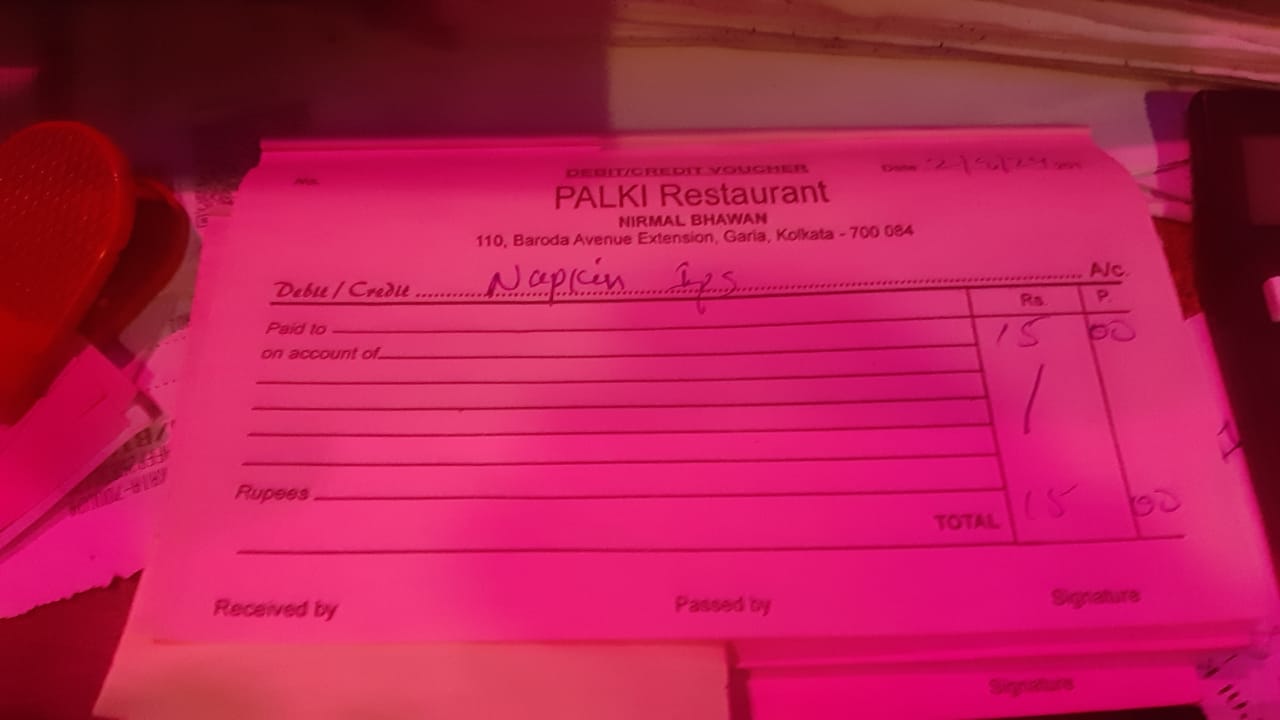 DEBIT/CREDIT VOUCHER
No. Date
PALKI Restaurant
NIRMAL BHAWAN
110, Baroda Avenue Extension, Garia, Kolkata - 700 084
Debit / Credit Napkin A/c.
Rs. P.
Paid to 15 00
on account of
Rupees
TOTAL 15 00
Received by Passed by Signature
Signature